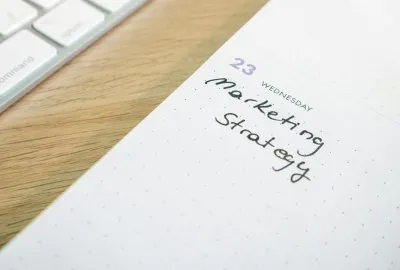 command
23
WEDNESDAY
Marketing
Strategy